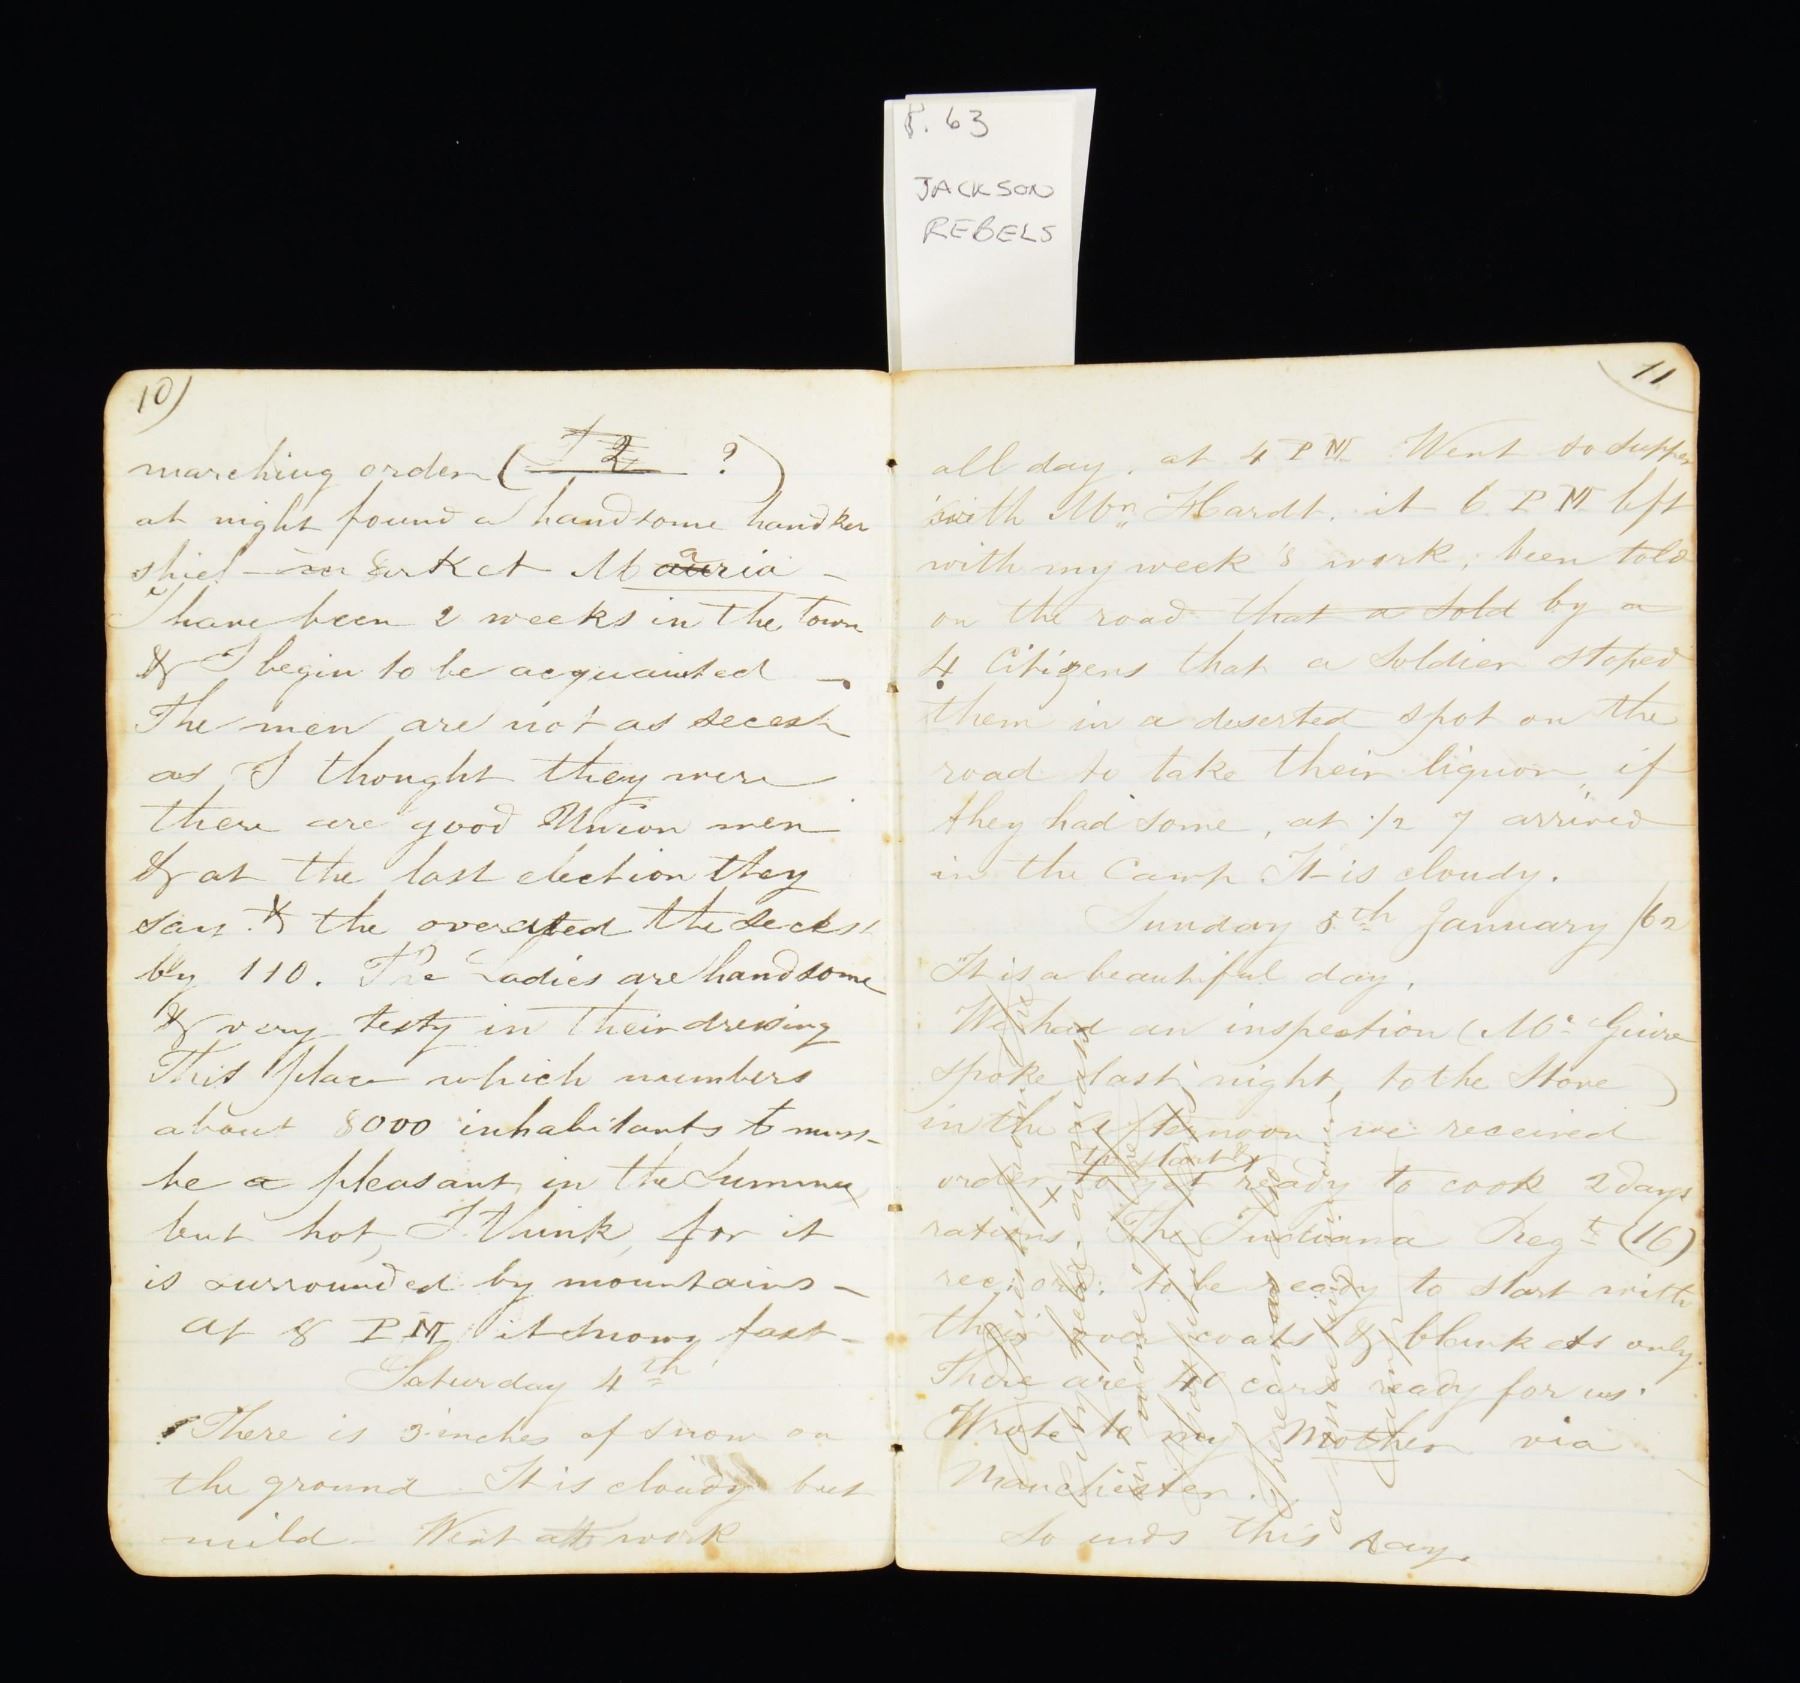 P. 63
JACKSON
REBELS
10)
marching order ( ?)
at night found a handsome handker
shief - Maria -
I have been 2 weeks in the town
& I begin to be acquainted -
The men are not as secesh
as I thought they were
there are good Union men
& at the last election they
say & the the secesh
by 110. The Ladies are handsome
& very testy in their dressing
This place which numbers
about 8000 inhabitants must
be a pleasant in the Summer
but hot, I think, for it
is surrounded by mountains -
at 8 PM it snowy fast -
Saturday 4th
There is 3 inches of snow on
the ground It is cloudy but
mild - Went at work
11
all day. at 4 PM Went to supper
with Mrs Hardt. at 6 PM left
with my week's work; been told
on the road that a sold by a
4 Citizens that a soldier stoped
them in a deserted spot on the
road to take their liquor, if
they had some, at 1/2 7 arrived
in the Camp It is cloudy.
Sunday 5th January /62
It is a beautiful day.
We had an inspection (Mc Guire
spoke last night, to the Store)
in the afternoon we received
to start &
order to get ready to cook 2 days
rations. The Indiana Regt (16)
rec: ord: to be ready to start with
their over coats & blankets only.
There are 40 cars ready for us.
Wrote to my Mother via
Manchester.
So ends this day.